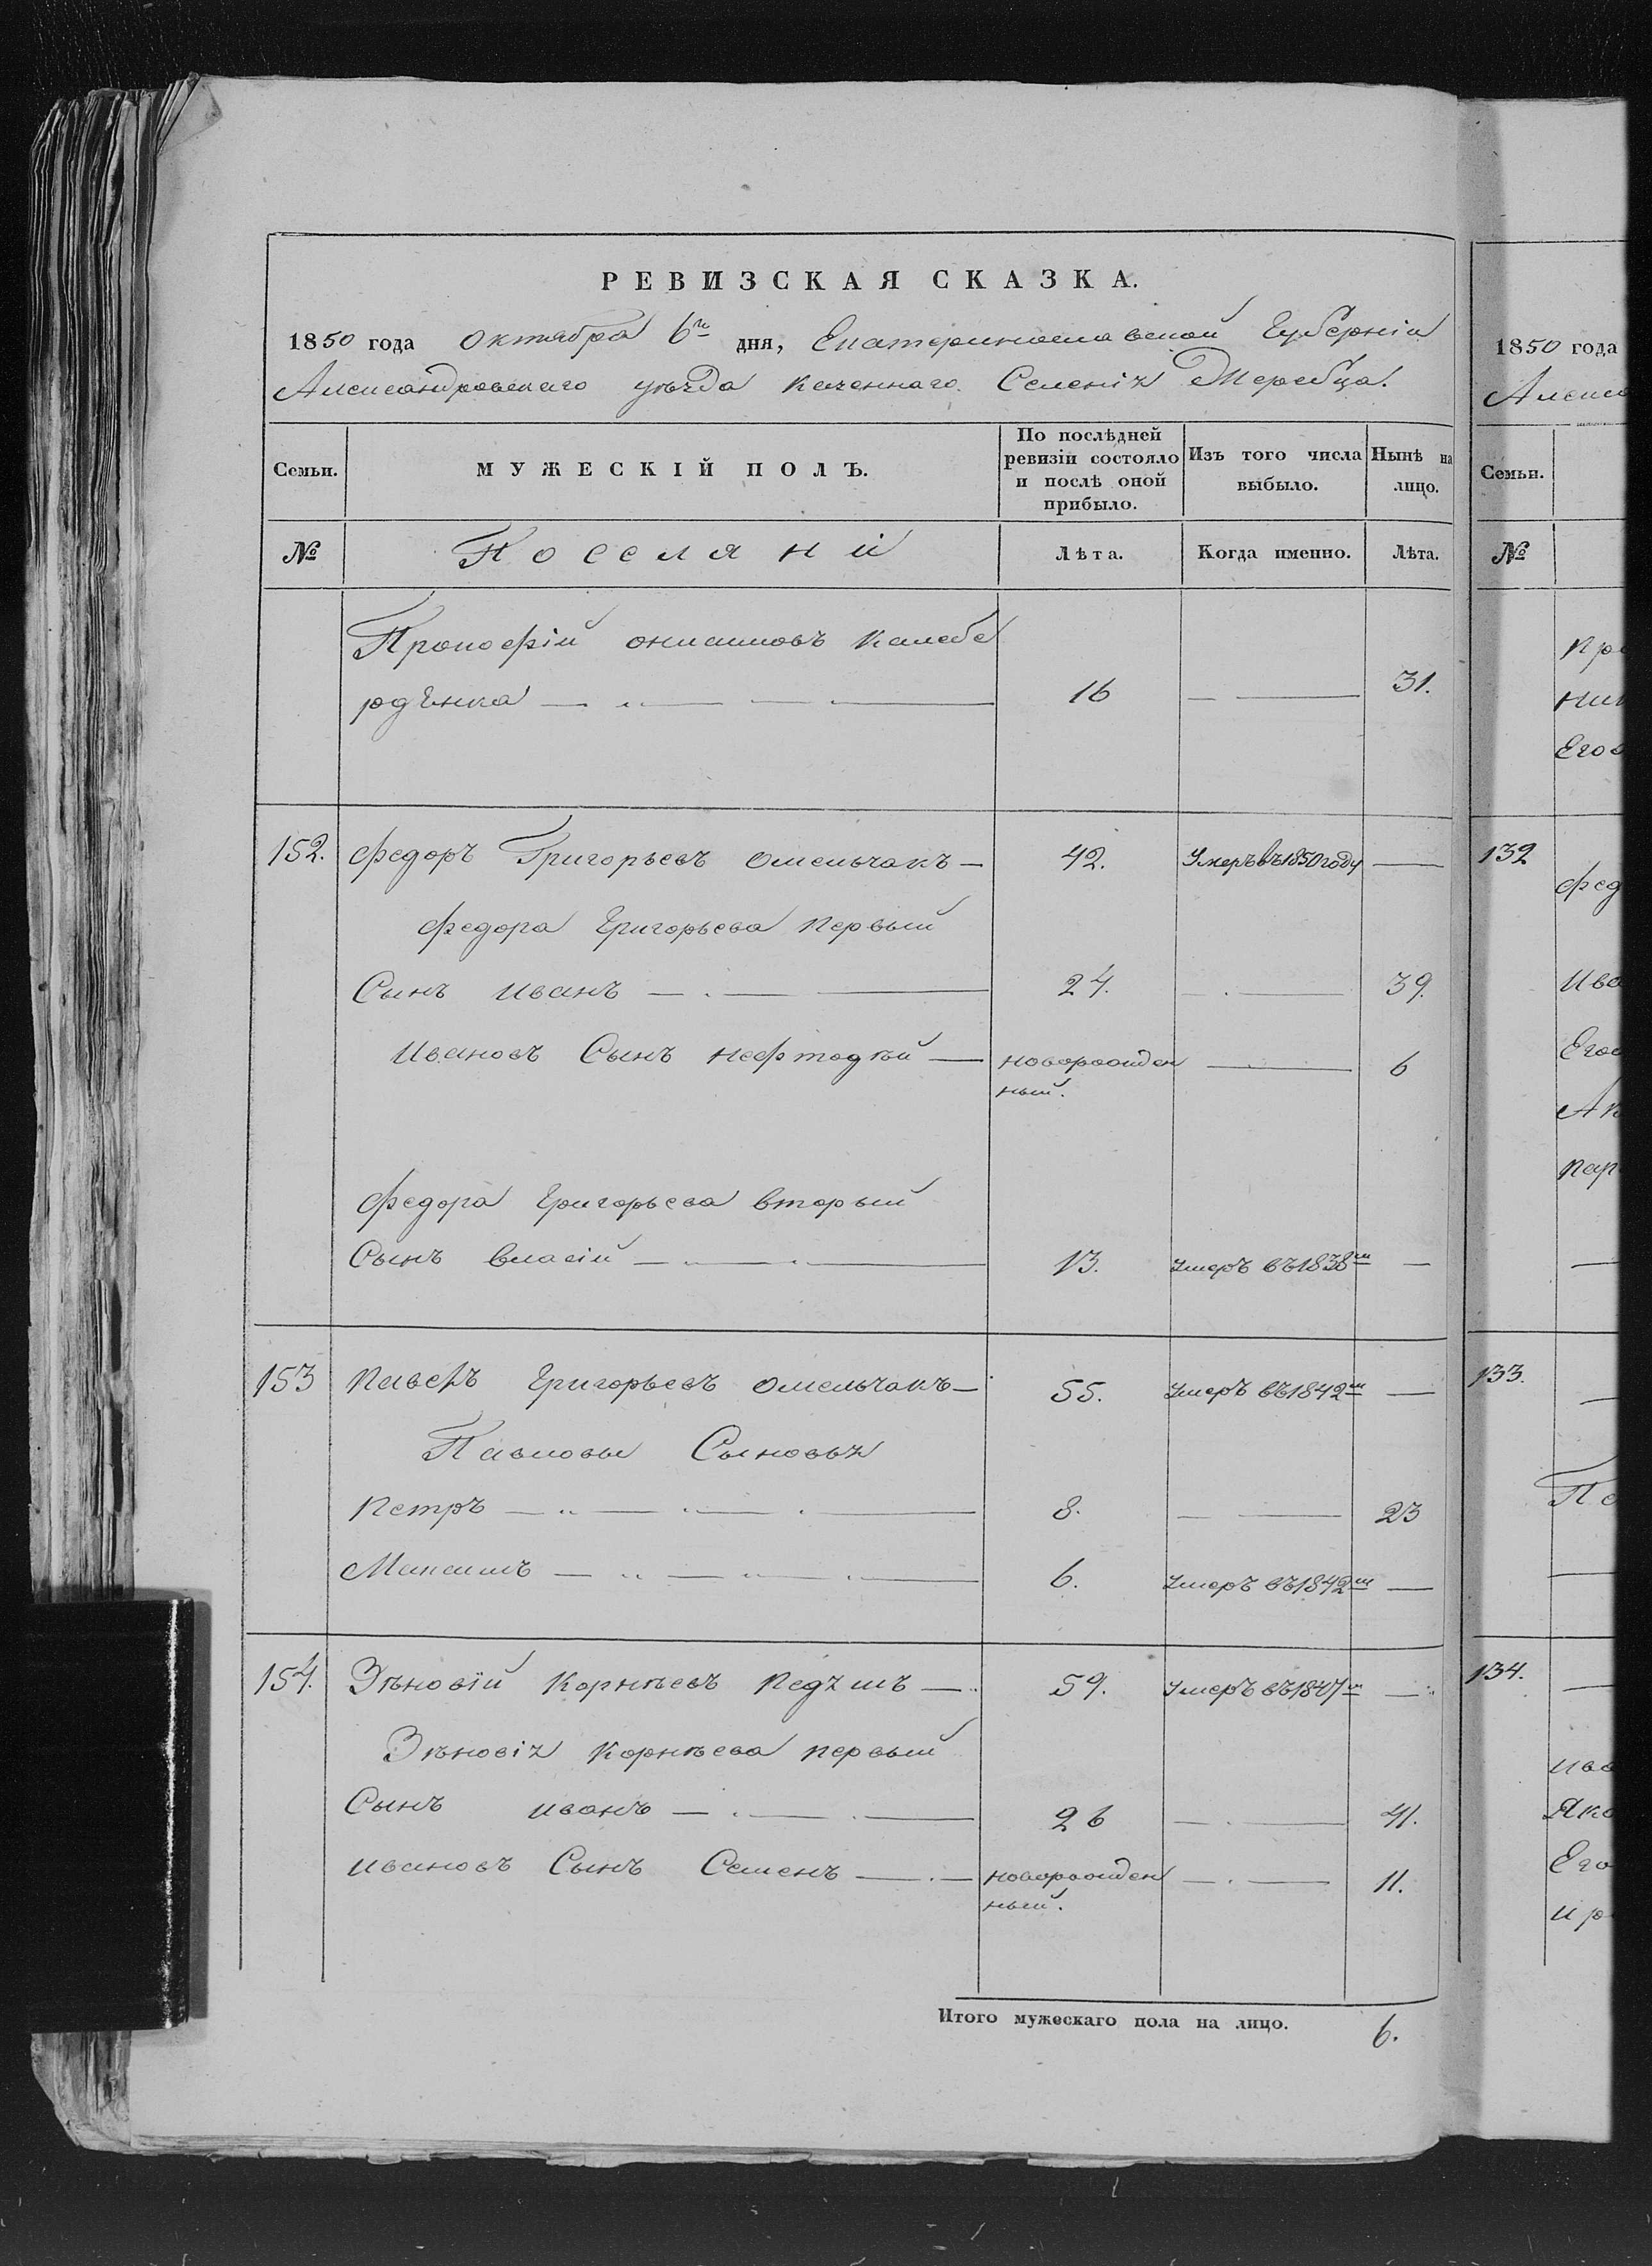 РЕВИЗСКАЯ СКАЗКА.
1850 года октября 6го дня, Екатеринославской Губерніи
Александровскаго уѣзда казеннаго Селенія Жеребца.
Семьи. МУЖЕСКІЙ ПОЛЪ. По послѣдней ревизіи состояло и послѣ оной прибыло. Изъ того числа выбыло. Ныне на лицо.
№ Лѣта. Когда именно. Лѣта.
Прокофій
16 31.
152. Федоръ Григорьевъ Омельчакъ 42. Умеръ въ 1850 году
Федора Григорьева первый
Сынъ Иванъ 24. 39.
Ивановъ Сынъ новорожден 6
ный.
Федора Григорьева вторый
Сынъ Власій 13. Умеръ въ 1838м
153 Павелъ Григорьевъ Омельчакъ 55. Умеръ въ 1842м
Павловы Сыновья
Петръ 8. 23
Максимъ 6. Умеръ въ 1842м
154. Зѣновій Корнѣевъ 59. Умеръ въ
Зѣновія Корнѣева первый
Сынъ Иванъ 26 41.
Ивановъ Сынъ Семенъ новорожден 11.
ный.
Итого мужескаго пола на лицо. 6.
1850 года
Семьи.
№
132
133.
134.